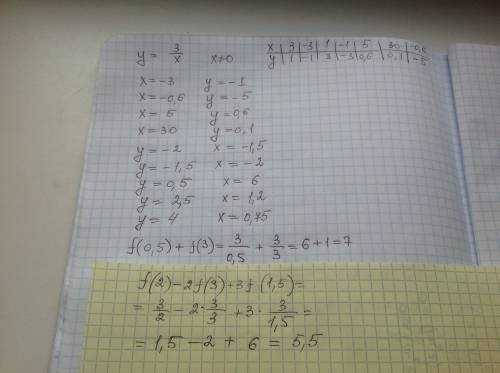 y = 3/x   x≠0
x | 3 | -3 | 1 | -1 | 5 | 30 | -0,6
y | 1 | -1 | 3 | -3 | 0,6 | 0,1 | -5
x=-3   y=-1
x=-0,6   y=-5
x=5   y=0,6
x=30   y=0,1
y=-2   x=-1,5
y=-1,5   x=-2
y=0,5   x=6
y=2,5   x=1,2
y=4   x=0,75
f(0,5)+f(3)=3/0,5+3/3=6+1=7
f(2)-2f(3)+3f(1,5)=
=3/2-2·3/3+3·3/1,5=
=1,5-2+6=5,5